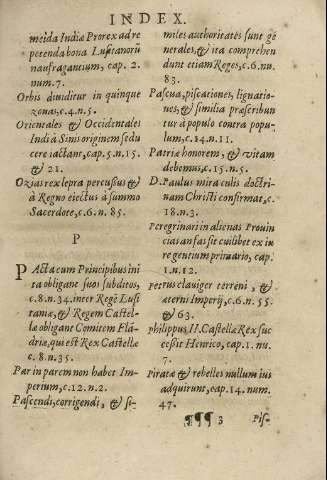 INDEX.
meida Indiæ Prorex ad re
petenda bona Lusitanorũ
naufragantium, cap. 2.
num. 7.
Orbis diuiditur in quinque
zonas, c. 4. n. 5.
Orientales & Occidentales
Indi à Sinis originem se du
cere iactant, cap. 5. n. 15.
& 21.
Ozias rex lepra percussus &
à Regno eiectus à summo
Sacerdote, c. 6. n. 85.
P
PActa cum Principibus ini
ta obligant suos subditos,
c. 8. n. 34. inter Regẽ Lusi
taniæ, & Regem Castel-
læ obligant Comitem Flã-
driæ, qui est Rex Castellæ
c. 8. n. 35.
Par in parem non habet Im-
perium, c. 12. n. 2.
Pascendi, corrigendi, & si-
miles authoritates sunt ge
nerales, & ita comprehen
dunt etiam Reges, c. 6. nu.
83.
Pascua, piscationes, lignatio-
nes, & similia præscribun
tur à populo contra popu-
lum, c. 14. n. 11.
Patriæ honorem, & vitam
debemus, c. 15. n. 5.
D. Paulus miraculis doctri-
nam Christi confirmat, c.
18. n. 3.
Peregrinari in alienas Prouin
cias an fas sit cuilibet ex iu
re gentium primario, cap.
1. n. 12.
Petrus clauiger terreni, &
æterni Imperij, c. 6. n. 55.
& 63.
philippus II. Castellæ Rex suc
cessit Henrico, cap. 1. nu.
7.
Piratæ & rebelles nullum ius
adquirunt, cap. 14. num.
47.
¶¶¶ 3 Pis-